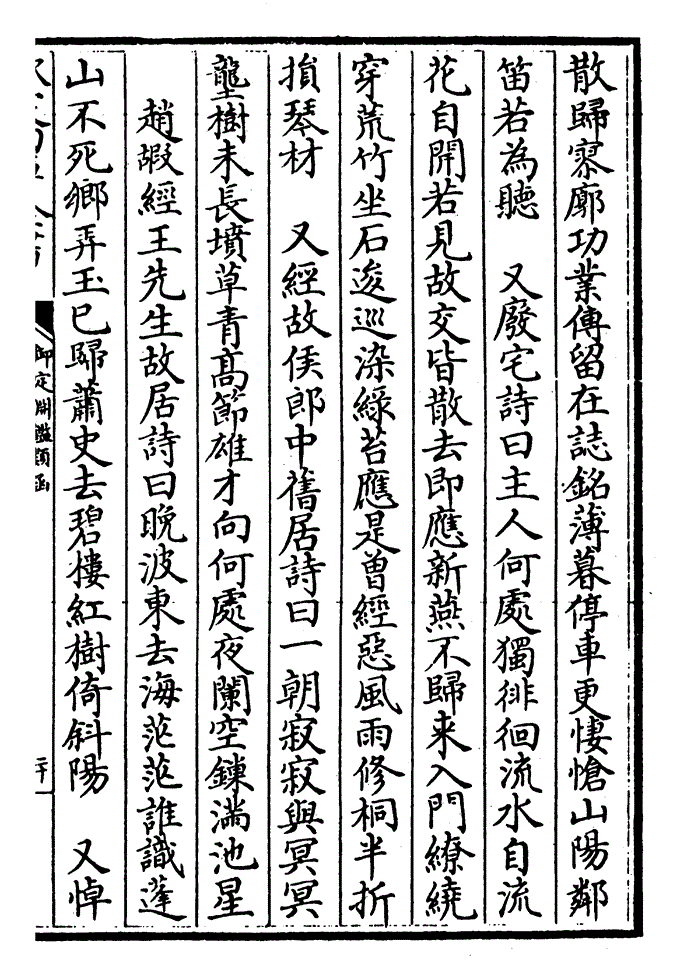 散歸寥廓功業傳留在誌銘薄暮停車更悽愴山陽鄰
笛若為聽　又廢宅詩曰主人何處獨徘徊流水自流
花自開若見故交皆散去即應新燕不歸来入門繚繞
穿荒竹坐石逡巡染綠苔應是曾經惡風雨修桐半折
損琴材　又經故侯郎中舊居詩曰一朝寂寂與冥冥
壟樹未長墳草青髙節雄才向何處夜闌空鏁滿池星
趙嘏經王先生故居詩曰晚波東去海茫茫誰識蓬
山不死鄉弄玉已歸蕭史去碧樓紅樹倚斜陽　又悼
御定淵鑑類函